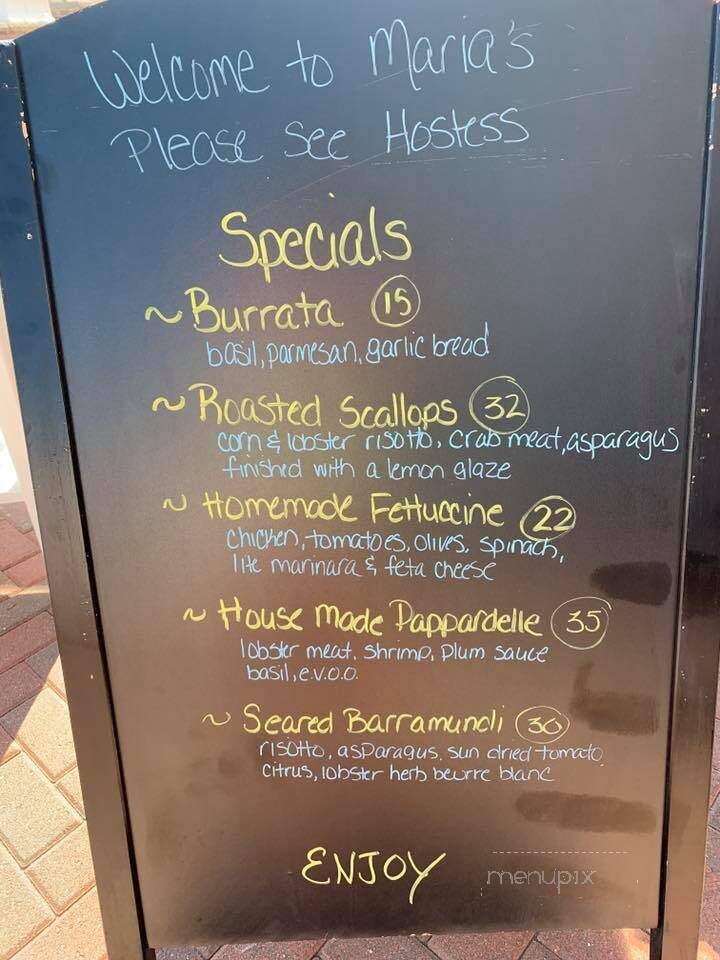 Welcome to Maria's
Please see Hostess
Specials
~ Burrata 15
basil, parmesan, garlic bread
~ Roasted Scallops 32
corn & lobster risotto, crab meat, asparagus
finished with a lemon glaze
~ Homemade Fettuccine 22
chicken, tomatoes, olives, spinach,
lite marinara & feta cheese
~ House Made Pappardelle 35
lobster meat, shrimp, plum sauce
basil, e.v.o.o.
~ Seared Barramundi 30
risotto, asparagus, sun dried tomato,
citrus, lobster herb beurre blanc
ENJOY
menupix